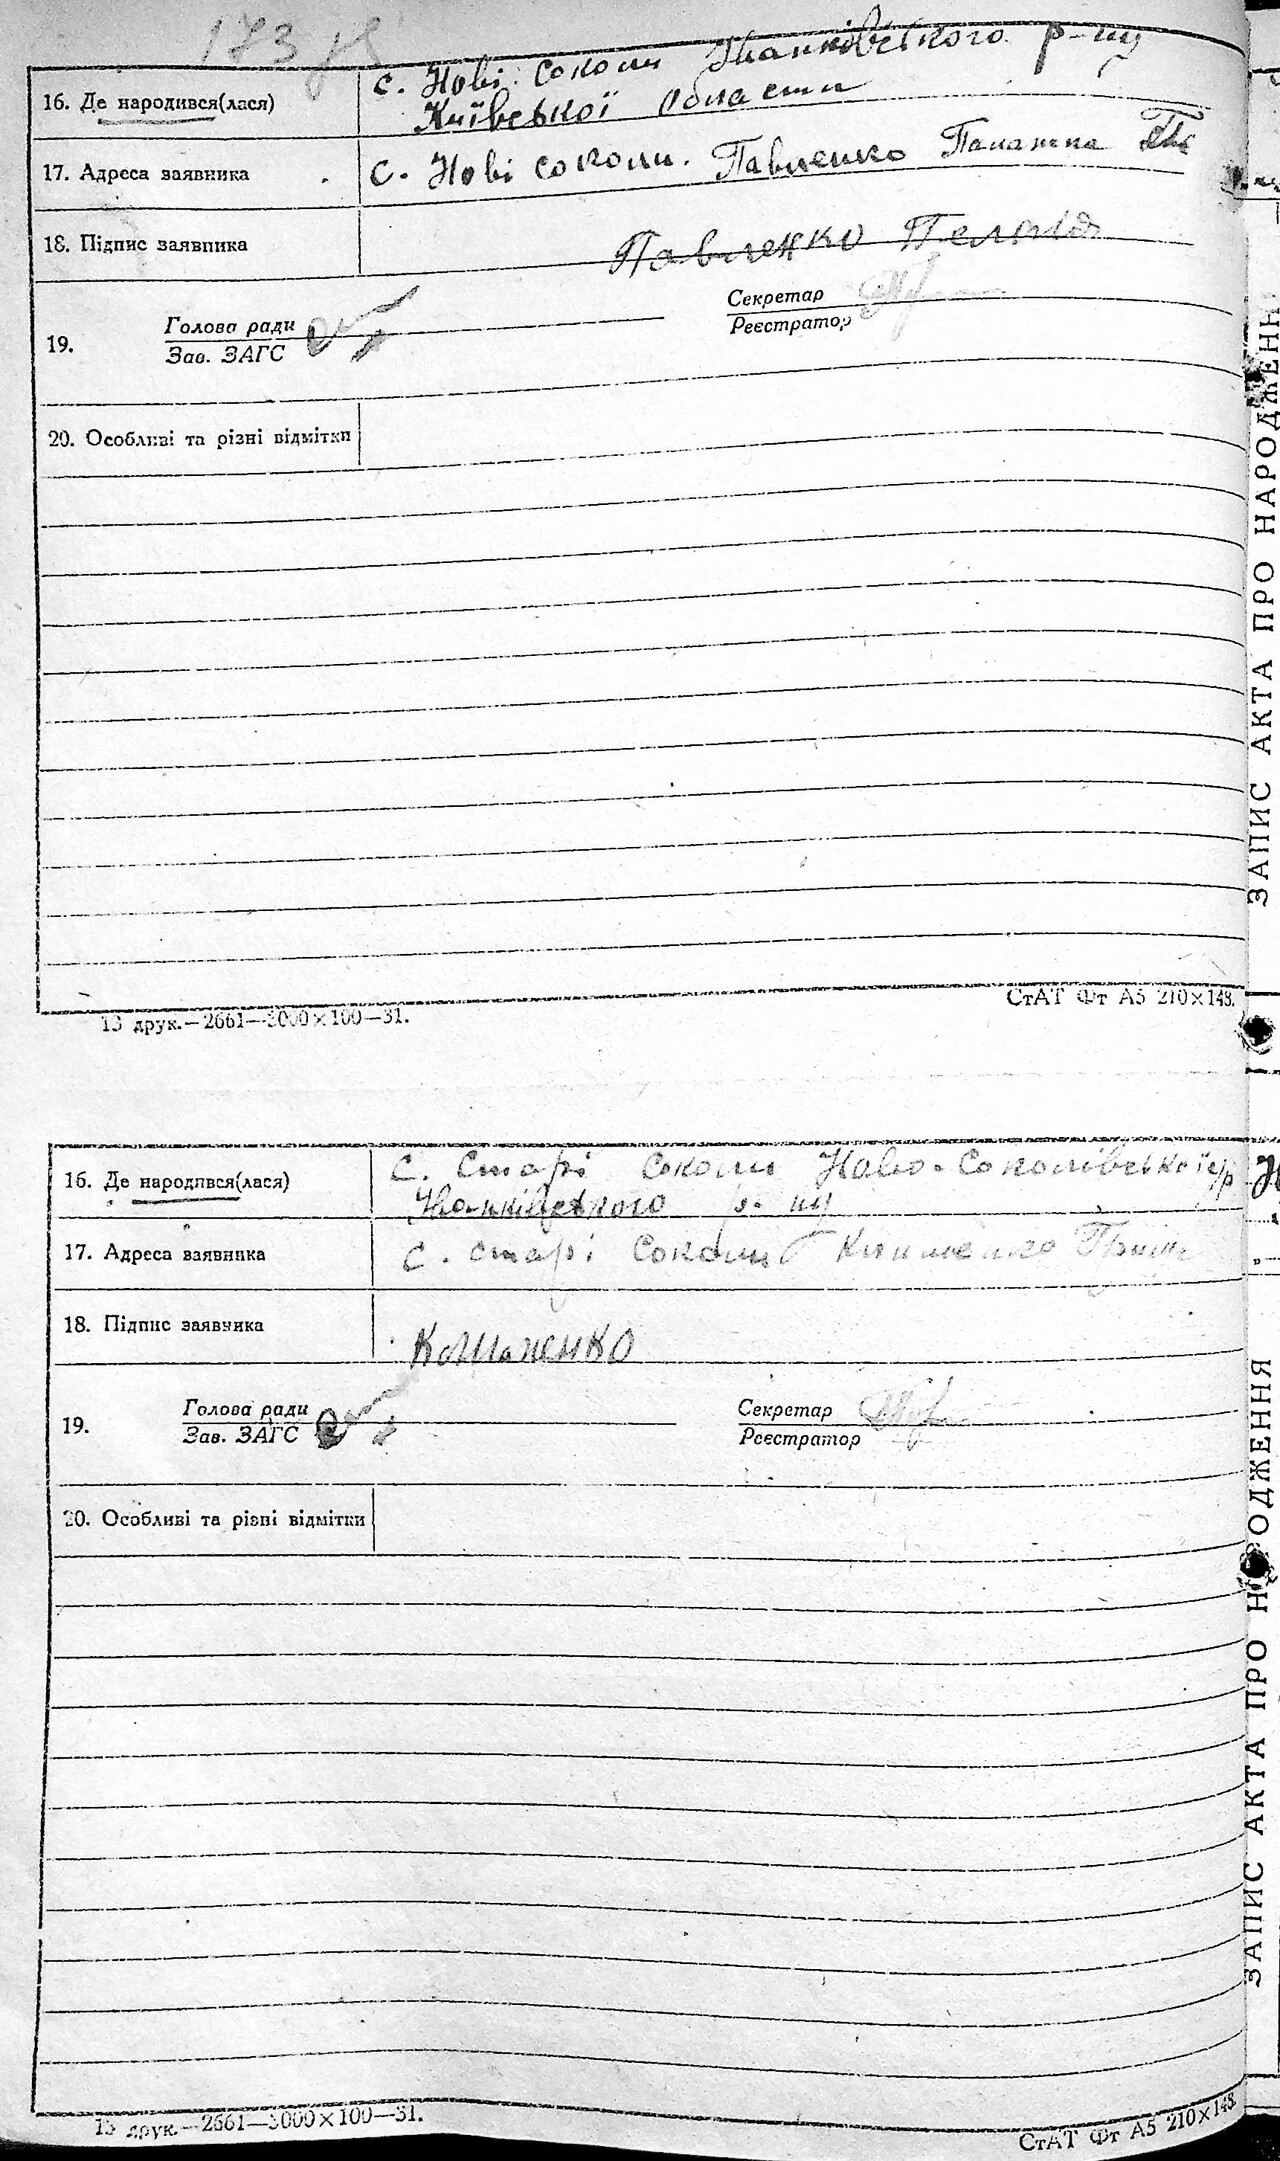 173
16. Де народився(лася)
с. Нові Соколи Іванківського р-ну
Київської области
17. Адреса заявника
с. Нові соколи. Павленко Палажка
18. Підпис заявника
Павленко
Голова ради
Секретар
19.
Зав. ЗАГС
Реєстратор
20. Особливі та різні відмітки
13 друк.—2661—3000×100—31.
СтАТ Фт А5 210×148.
16. Де народився(лася)
с. Старі Соколи Ново-Соколівської с/р
Іванківського р-ну
17. Адреса заявника
с. старі Соколи
18. Підпис заявника
Голова ради
Секретар
19.
Зав. ЗАГС
Реєстратор
20. Особливі та різні відмітки
13 друк.—2661—3000×100—31.
СтАТ Фт А5 210×148
ЗАПИС АКТА ПРО НАРОДЖЕНН
ЗАПИС АКТА ПРО Н ОДЖЕННЯ